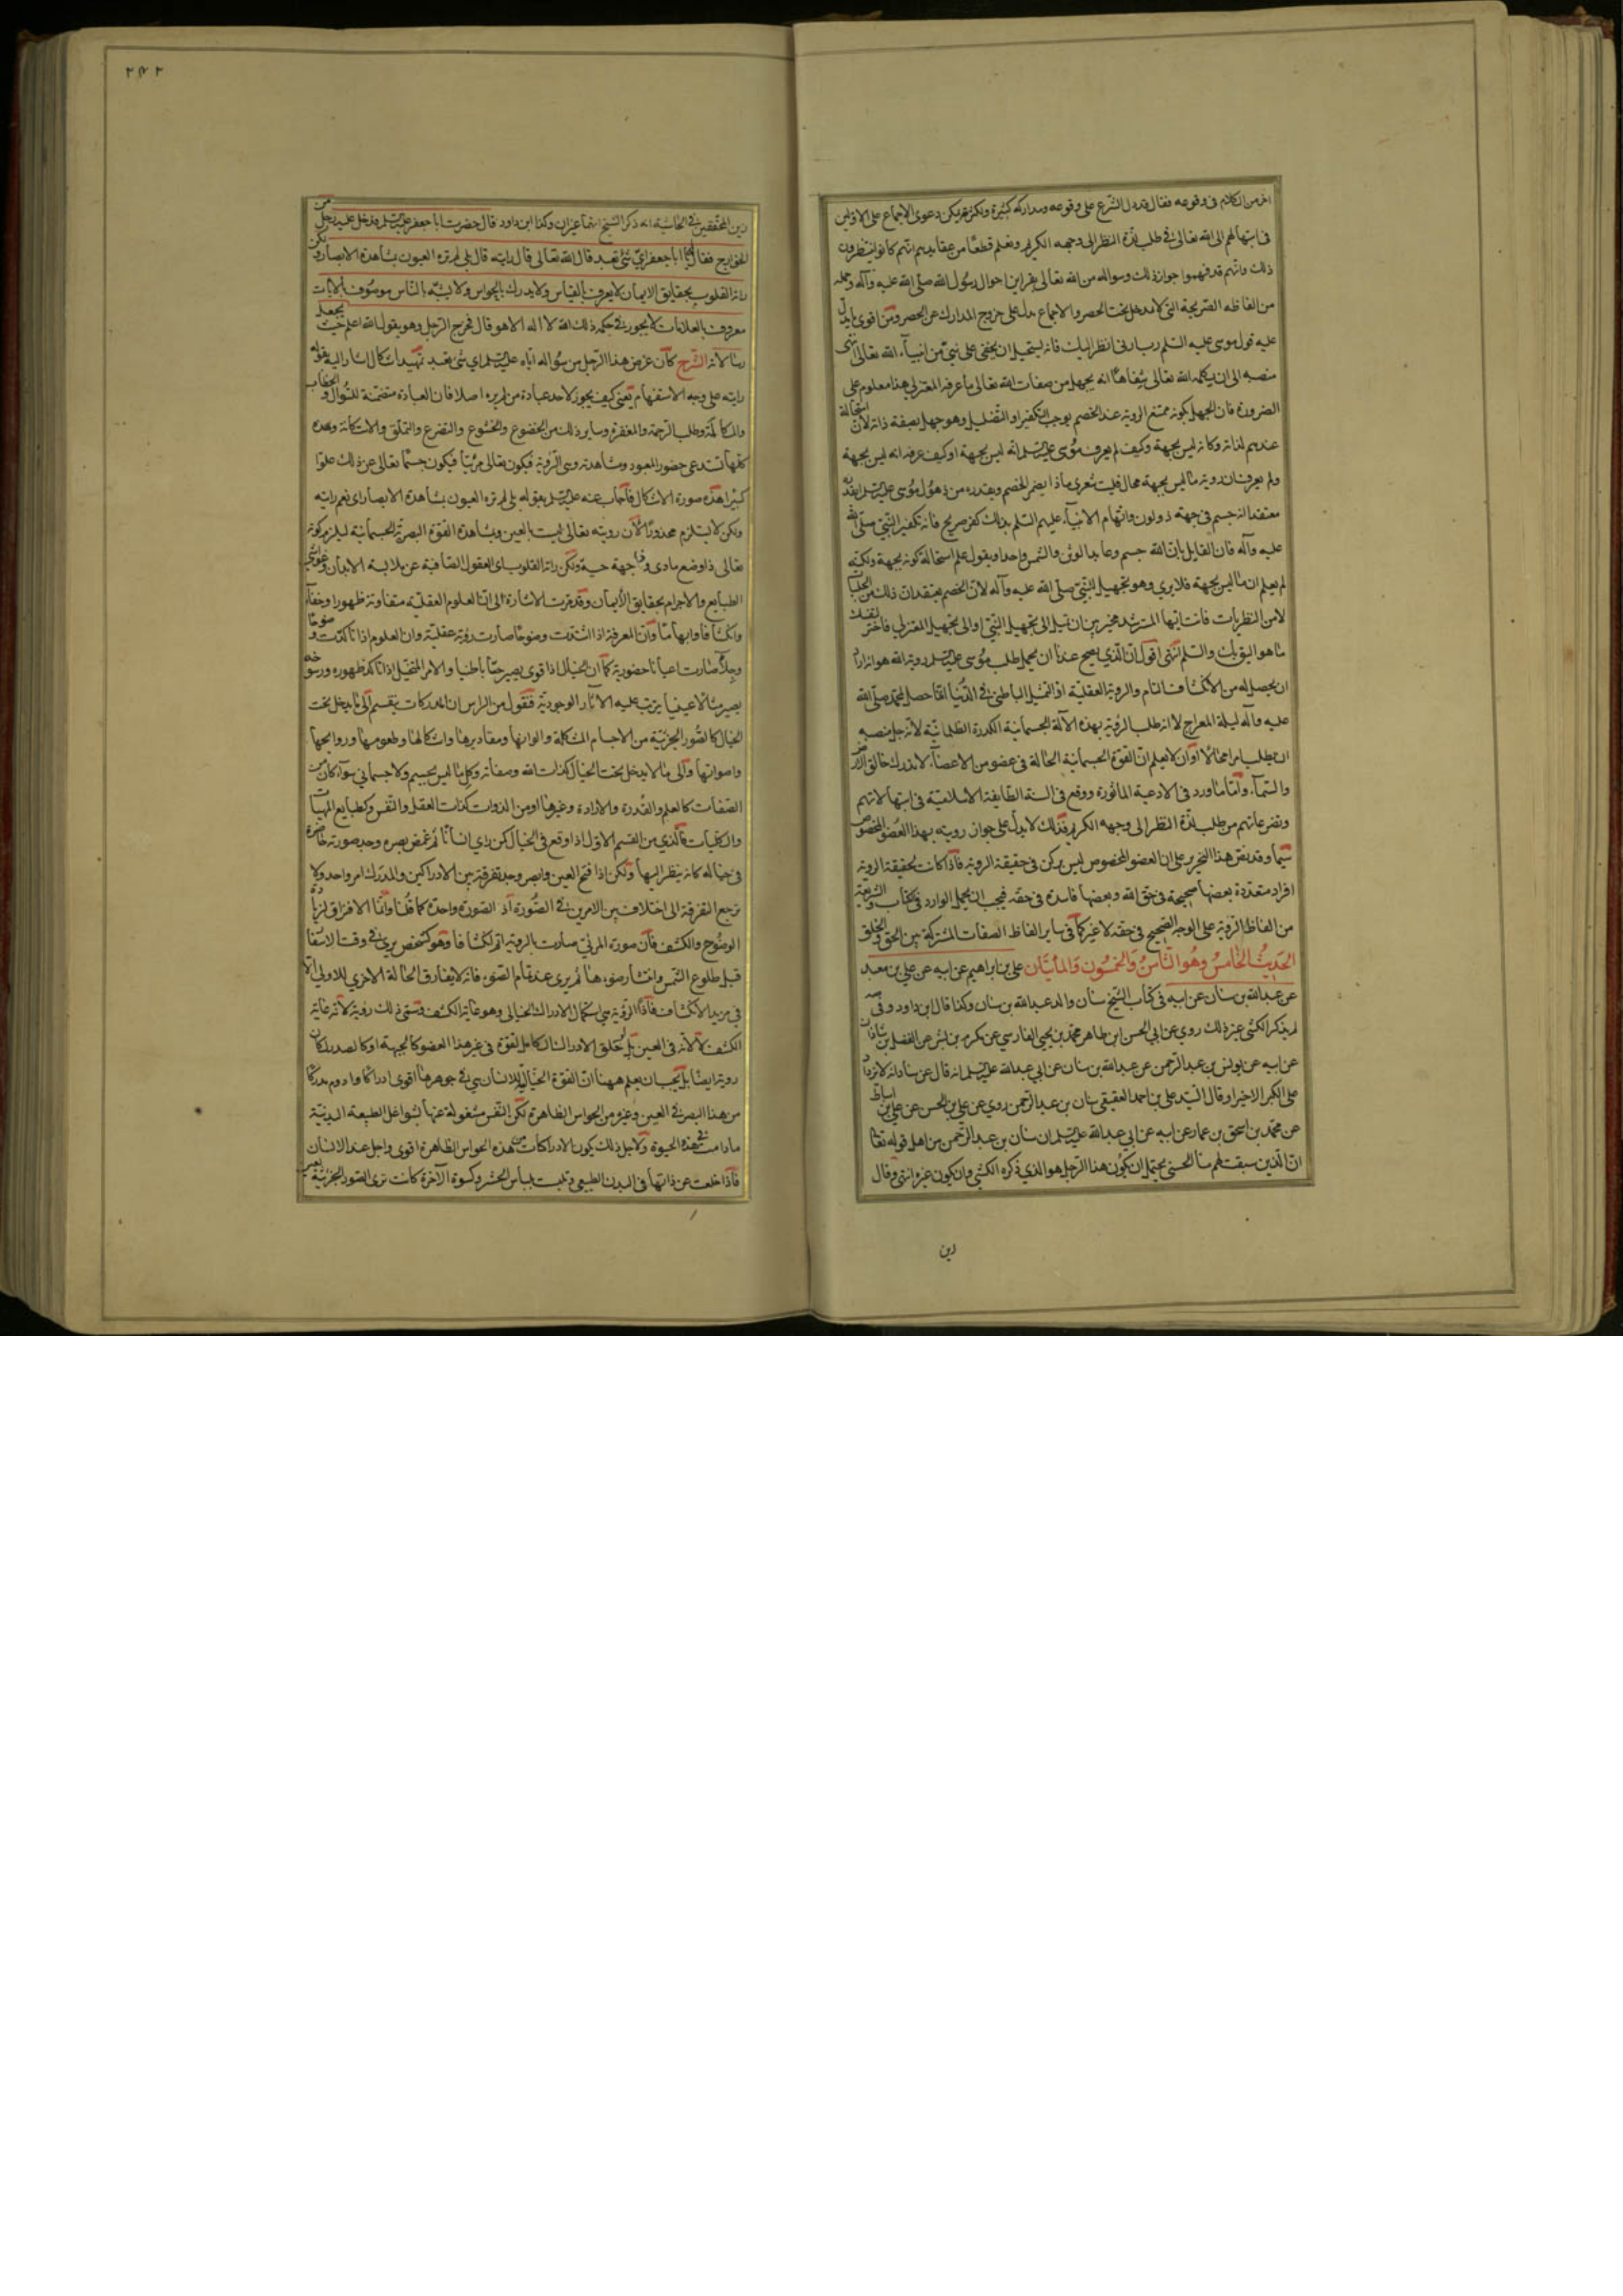 اخر من الكلام فى وقوعه فقال قد دل الشرع على وقوعه ومداركه كثيرة ولكثرته يمكن دعوى الاجماع على الاولين
فى ابتهالهم الى الله تعالى فى طلب لذة النظر الى وجهه الكريم ونعلم قطعا من عقايدهم انهم كانوا ينتظرون
ذلك وانهم قد فهموا جواز ذلك وسواله من الله تعالى بقراين احوال رسول الله صلى الله عليه وآله وجمله
من الفاظه الصريحة التى لا مدخل تحت الحصر والاجماع يدل على خروج المدارك عن الحصر ومن اقوى ما يدل
عليه قول موسى عليه السلم رب ارنى انظر اليك فانه يستحيل ان يخفى على نبى من انبياء الله تعالى انتهى
منصبه الى ان يكلمه الله تعالى شفاها انه يجهل من صفات الله تعالى ما عرفه المعتزلى هذا معلوم على
الضرورة فان الجهل بكونه ممتنع الروية عند الخصم يوجب التكفير او التضليل وهو جهل بصفة ذاته لان استحالة
عندهم لذاته وكانه ليس بجهة وكيف لم يعرف موسى عليه السلم انه ليس بجهة او كيف عرف انه ليس بجهة
ولم يعرف ان روية ما ليس بجهة محال فليت شعرى ماذا يضمر الخصم ويقدره من ذهول موسى عليه السلم ايقدره
معتقدا انه جسم فى جهة ذو لون واتهام الانبياء عليهم السلم بذلك كفر صريح فانه تكفير النبى صلى الله
عليه وآله فان القايل بان الله جسم وعابد الوثن والشمس واحد او يقول علم استحالة كونه بجهة ولكنه
لم يعلم ان ما ليس بجهة فلا يرى وهو تجهيل النبى صلى الله عليه وآله لان الخصم يعتقد ان ذلك من الجليات
لا من النظريات فانت ايها المسترشد مخير بين ان تميل الى تجهيل النبى او الى تجهيل المعتزلى فاختر لنفسك
ما هو اليق بك والسلم انتهى اقول ان الذى يصح عندنا ان يحمل طلب موسى عليه السلم روية الله هو انه اراد
ان يحصل له من الانكشاف التام والروية العقلية اذ التمثيل الباطنى فى الدنيا لقا حصل لمحمد صلى الله
عليه وآله ليلة المعراج لا انه طلب الروية بهذه الآلة الجسمانية الكدرة الظلمانية لانه جل منصبه
ان يطلب امرا محالا او ان لا يعلم ان القوة الجسمانية الحالة فى عضو من الاعضاء لا يدرك خالق الارض
والسماء واما ما ورد فى الادعية الماثورة ووقع فى السنة الطايفة الاسلامية فى ابتهالاتهم
وتضرعاتهم من طلب لذة النظر الى وجهه الكريم فذلك لا يدل على جواز رويته بهذا العضو المخصوص
سيما وقد نص هذا النحرير على ان العضو المخصوص ليس بركن فى حقيقة الروية فاذا كانت لحقيقة الروية
افراد متعددة بعضها صحيحة فى حق الله وبعضها فاسدة فى حقه فيجب ان يحمل الوارد فى كتاب الشريعة
من الفاظ الروية على الوجه الصحيح فى حقه لا غير كما فى ساير الفاظ الصفات المشتركة بين الحق والخلق
الحديث الخامس وهو الثامن والخمسون والمائتان على بن ابراهيم عن ابيه عن على بن معبد
عن عبد الله بن سنان عن ابيه فى كتاب الشيخ سنان والد عبد الله بن سنان وكذا قال ابن داود وفى
لم يذكر الكشى غير ذلك روى عن ابى الحسن ابن طاهر محمد بن يحيى الفارسى عن مكرم بن بشر عن الفضل بن شاذان
عن ابيه عن يونس بن عبد الرحمن عن عبد الله بن سنان عن ابى عبد الله عليه السلم انه قال عن سنان انه لا يزداد
على الكبر الا خيرا وقال السيد على بن احمد العقيقى سنان بن عبد الرحمن روى عن على بن الحسن عن على بن اسباط
عن محمد بن اسحق بن عمار عن ابيه عن ابى عبد الله عليه السلم ان سنان بن عبد الرحمن من اهل قوله تعالى
ان الذين سبقت لهم منا الحسنى يحتمل ان يكون هذا الرجل هو الذى ذكره الكشى وان يكون غيره انتهى وقال
رين
٢٤٢
رين المحققين فى الحاشية انه ذكر الشيخ انهما غيران وكذا ابن داود قال حضرت ابا جعفر عليه السلم فدخل عليه رجل من
الخوارج فقال له يا ابا جعفر اى شى تعبد قال الله تعالى قال رايته قال بلى لم تره العيون بمشاهدة الابصار ولكن
راته القلوب بحقايق الايمان لا يعرف بالقياس ولا يدرك بالحواس ولا يشبه بالناس موصوف بالايات
معروف بالعلامات لا يجور فى حكمه ذلك الله لا اله الا هو قال فخرج الرجل وهو يقول الله اعلم حيث يجعل
رسالاته الشرح كان غرض هذا الرجل من سواله اياه عليه السلم اى شى تعبد تمهيد اشكال اشار اليه بقوله
رايته على وجه الاستفهام يعنى كيف يجوز لاحد عبادة من لم يره اصلا فان العبادة متضمنة للسوال والخطاب
والمكالمة وطلب الرحمة والمغفرة وساير ذلك من الخضوع والخشوع والتضرع والتملق والاستكانة وهذه
كلها تستدعى حضور المعبود ومشاهدته وهى الروية فيكون تعالى مرئيا فيكون جسما تعالى عن ذلك علوا
كبيرا هذه صورة الاشكال فاجاب عنه عليه السلم بقوله بلى لم تره العيون بمشاهدة الابصار اى نعم رايته
ولكن لا يستلزم محذورا لان رويته تعالى ليست بالعين وبمشاهدة القوة البصرية الجسمانية ليلزم كونه
تعالى ذا وضع مادى وذا جهة حسية ولكن راته القلوب اى العقول الصافية عن ملابسة الابدان وغواشى
الطبايع والاجرام بحقايق الايمان وقد مرت الاشارة الى ان العلوم العقلية متفاوتة ظهورا وخفاء
وانكشافا وابهاما وان المعرفة اذا اشتدت وضوحا صارت روية عقلية وان العلوم اذا تاكدت وضوحا
وجلاء صارت اعيانا حضورية كما ان الخيال اذا قوى يصير حسا باطنيا والامر المتخيل اذا تاكد ظهوره ورسوخه
يصير مثالا عينيا يترتب عليه الاثار الوجودية فنقول من الراس ان المدركات ينقسم الى ما يدخل تحت
الخيال كالصور الجزئية من الاجسام المشكلة والوانها ومقاديرها واشكالها وطعومها وروايحها
واصواتها والى ما لا يدخل تحت الخيال كذات الله وصفاته وكل ما ليس بجسم ولا جسمانى سواء كان من
الصفات كالعلم والقدرة والارادة وغيرها او من الذوات كذات العقل والنفس وكطبايع المهيات
والكليات فالذى من القسم الاول اذا وقع فى الخيال كمن راى انسانا ثم غمض بصره وجد صورته حاضرة
فى خياله كانه ينظر اليها ولكن اذا فتح العين وابصر وجد تفرقة بين الادراكين والمدرك امر واحد ولا
ترجع التفرقة الى اختلاف بين الامرين فى الصورة اذ الصورة واحدة كما قلنا وانما الافتراق لزيادة
الوضوح والكشف فان صورة المرئى صارت بالروية اتم انكشافا وهو كشخص يرى فى وقت الاسفار
قبل طلوع الشمس وانتشار ضوءها ثم يرى عند تمام الضوء فانه لا يفارق الحالة الاخرى للاولى الا
فى مزيد الانكشاف فاذا الروية هى استكمال الادراك الخيالى وهو غاية الكشف وسمى ذلك روية لانه غاية
الكشف لا لانه فى العين بل لو خلق الادراك الكامل لقوة فى غير هذا العضو كالجبهة او كالصدر لكان
روية ايضا بل يجب ان يعلم ههنا ان القوة الخيالية للانسان هى فى جوهرها اقوى ادراكا وادوم مدركا
من هذا البصر فى العين وغيره من الحواس الظاهرة لكن النفس مشغولة عنها بشواغل الطبيعة البدنية
مادامت فى هذه الحيوة ولاجل ذلك يكون الادراكات من هذه الحواس الظاهرة اقوى واجل عند الانسان
فاذا خلعت عن ذاتها فى البدن الطبيعى وتلبست بلباس الحشر وكسوة الآخرة كانت ترى الصور الجزئية بعين